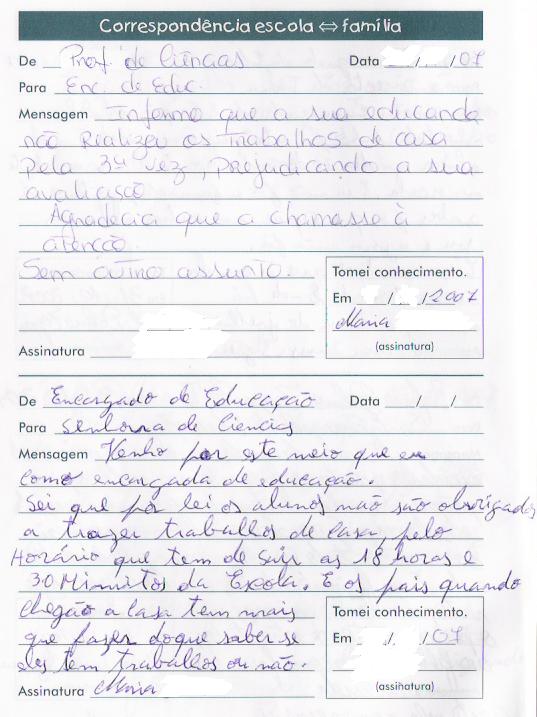 Correspondência escola ⇔ família
De Prof. de Ciências Data / /07
Para Enc. de Educ.
Mensagem Informo que a sua educanda
não Realizou os trabalhos de casa
pela 3ª vez, prejudicando a sua
avaliação
Agradecia que a chamasse à
atenção.
Sem outro assunto.
Tomei conhecimento.
Em / /2007
Maria
(assinatura)
Assinatura
De Encargado de Educação Data / /
Para senhora de Ciencias
Mensagem Venho por este meio que eu
como encargada de educação.
Sei que por lei os alunos não são obrigados
a trazer trabalhos de casa, pelo
Horário que tem de sair as 18 horas e
30 Minutos da Escola. E os pais quando
chegão a casa tem mais
que fazer doque saber se
eles tem trabalhos ou não.
Tomei conhecimento.
Em / /07
(assinatura)
Assinatura Maria